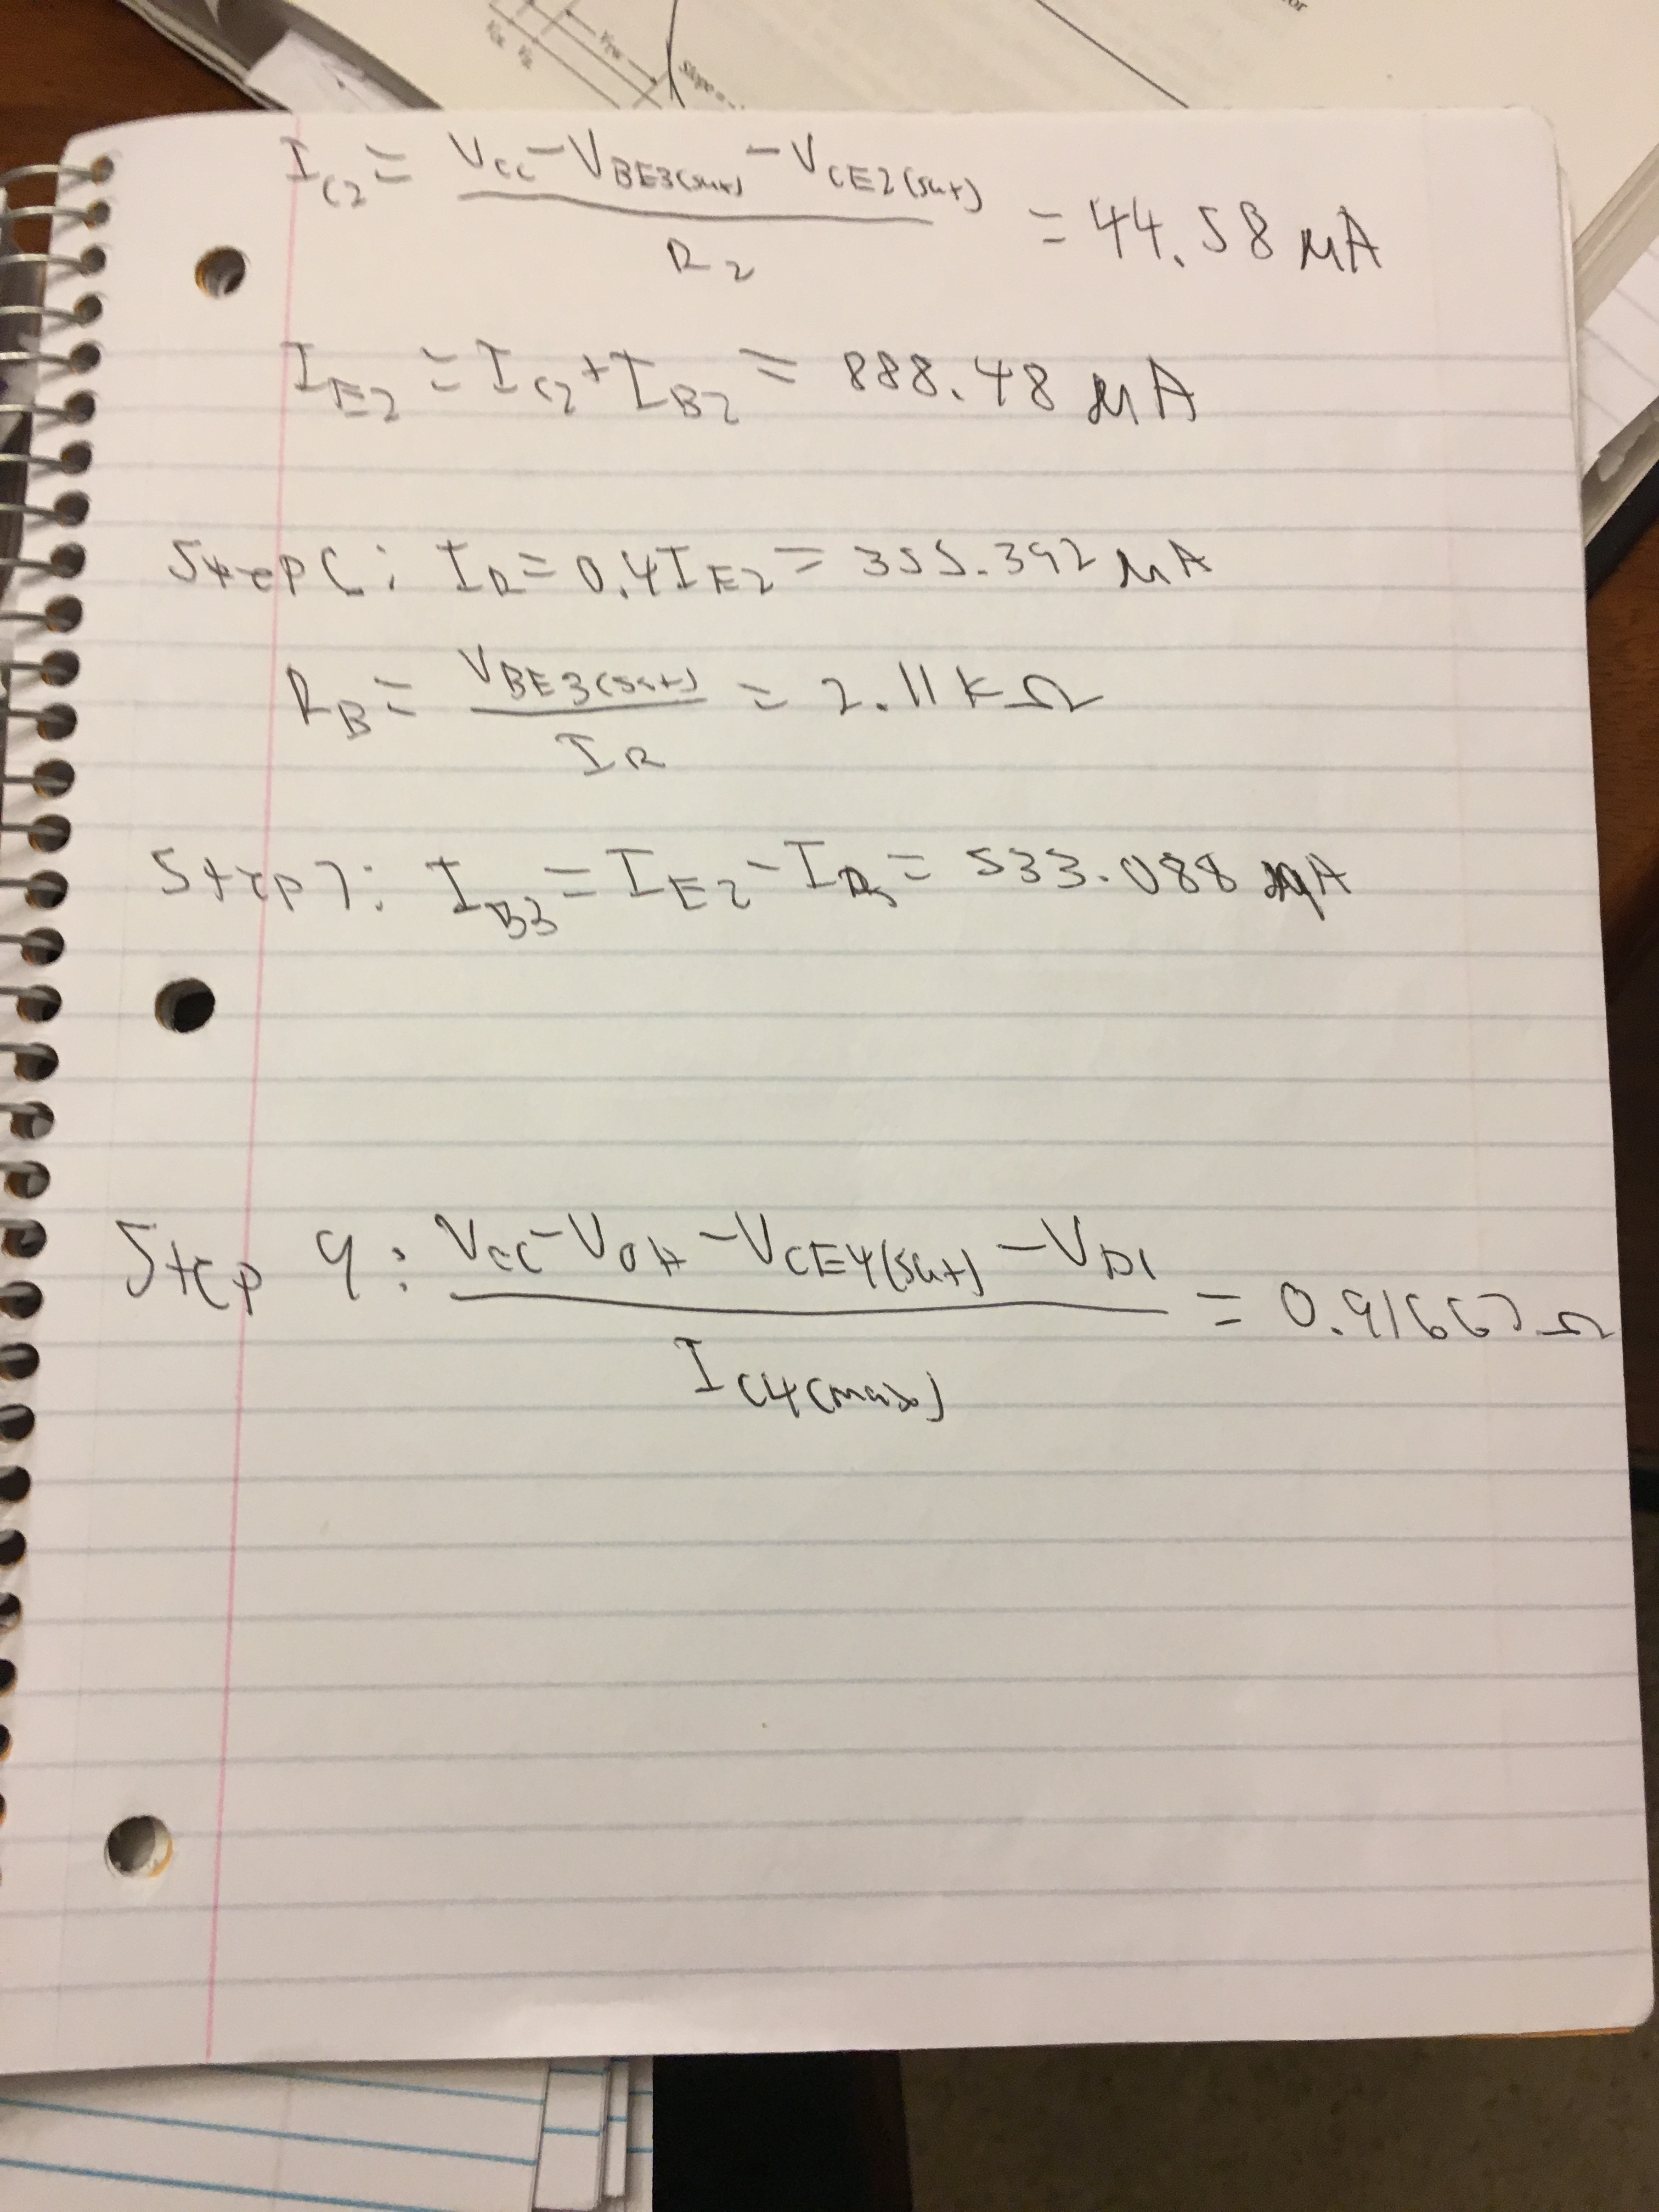 Slope =
I_C2 = (V_CC - V_BE3(sat) - V_CE2(sat)) / R_2 = 44.58 μA
I_E2 = I_C2 + I_B2 = 888.48 μA
Step 6: I_R = 0.4I_E2 = 355.392 μA
R_B = V_BE3(sat) / I_R = 2.11 kΩ
Step 7: I_B3 = I_E2 - I_R = 533.088 μA
Step 9: (V_CC - V_OH - V_CE4(sat) - V_D1) / I_C4(max) = 0.91667 Ω